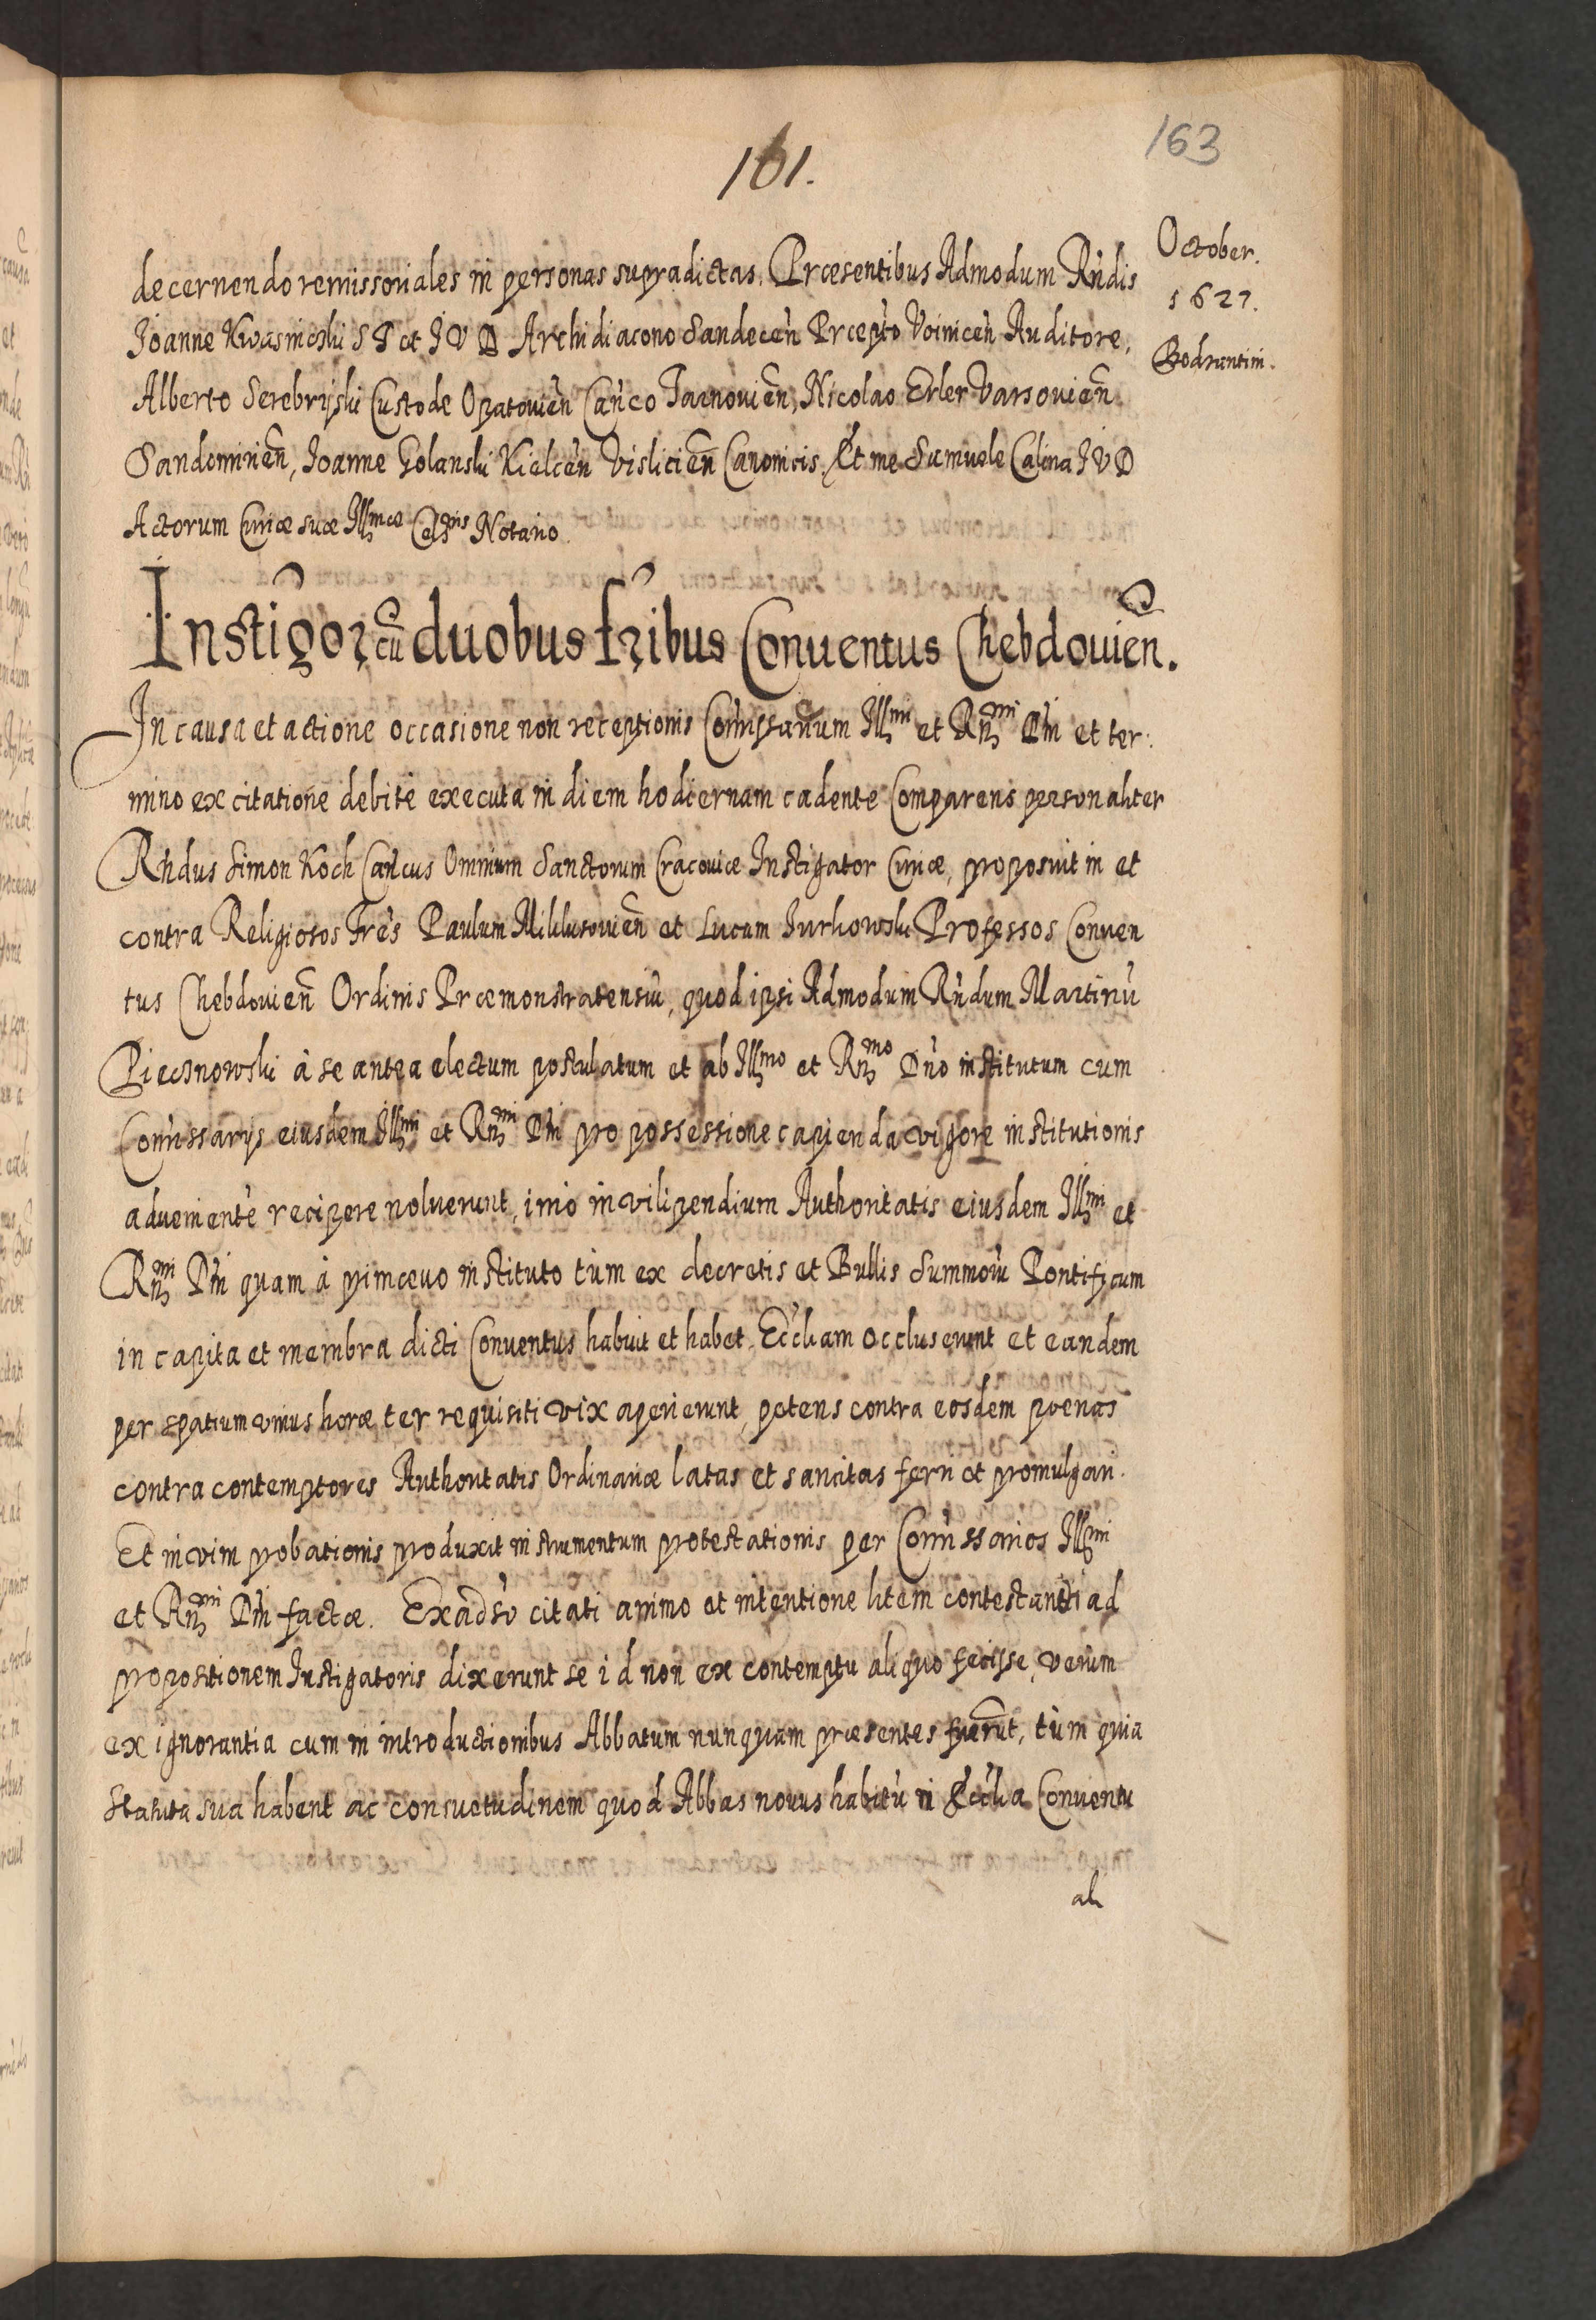 163
161.
October.
1627.
Bodzantini.
decernendo remissoriales in personas supradictas. Præsentibus Admodum Rńdis
Joanne Kwasnicski S T et J V D Archidiacono Sandeceń Præpto Voiniceń Auditore,
Alberto Serebryski Custode Opatovień Cańco Tarnovień, Nicolao Erler Varsovień
Sandomirień, Joanne Golanski Kielceń Vislicień Canonicis. Et me Samuele Calina J V D
Actorum Curiæ suæ Illmæ Celsnis Notario.
Instigor cū duobus fribus Conventus Chebdovień.
In causa et actione occasione non receptionis Comissariorum Illmi et Rnmi Dńi et ter:
mino ex citatione debite executa in diem hodiernam cadente Comparens personaliter
Rńdus Simon Koch Cańcus Omnium Sanctorum Cracoviæ Instigator Curiæ, proposuit in et
contra Religiosos Fres Paulum Miklusovień et Lucam Jurkowski Professos Conven
tus Chebdovień Ordinis Præmonstratensiū, quod ipsi Admodum Rńdum Martinū
à se antea electum postulatum et ab Illmo et Rnmo Dńo institutum cum
Comissarijs eiusdem Illmi et Rnmi Dńi pro possessione capienda vigore institutionis
adveniente recipere noluerunt, imò in vilipendium Authoritatis eiusdem Illmi et
Rnmi Dńi quam à primævo instituto tùm ex decretis et Bullis Summorū Pontificum
in capita et membra dicti Conventus habuit et habet. Eccliam occluserunt et eandem
per spatium unius horæ ter requisiti vix aperierunt, petens contra eosdem poenas
contra contemptores Authoritatis Ordinariæ latas et sancitas ferri et promulgari.
Et in vim probationis produxit instrumentum protestationis per Comissarios Illmi
et Rnmi Dńi factæ. Ex adsò citati animo et intentione litem contestandi ad
propositionem Instigatoris dixerunt se id non ex contemptu aliquo fecisse, verùm
ex ignorantia cum in introductionibus Abbatum nunquam præsentes fuerūt, tùm quia
statuta sua habent ac consuetudinem quod Abbas novus habitū in Ecclia Conventu
ali